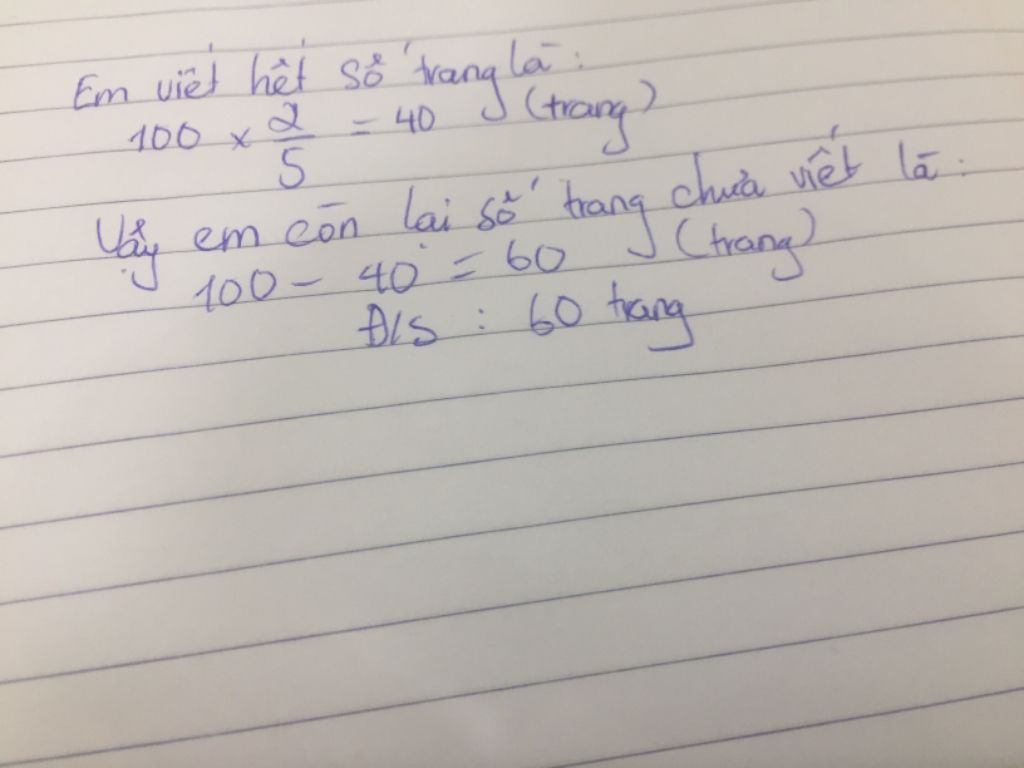 Em viết hết số trang là:
100 x 2/5 = 40 (trang)
Vậy em còn lại số trang chưa viết là:
100 - 40 = 60 (trang)
Đ/S : 60 trang